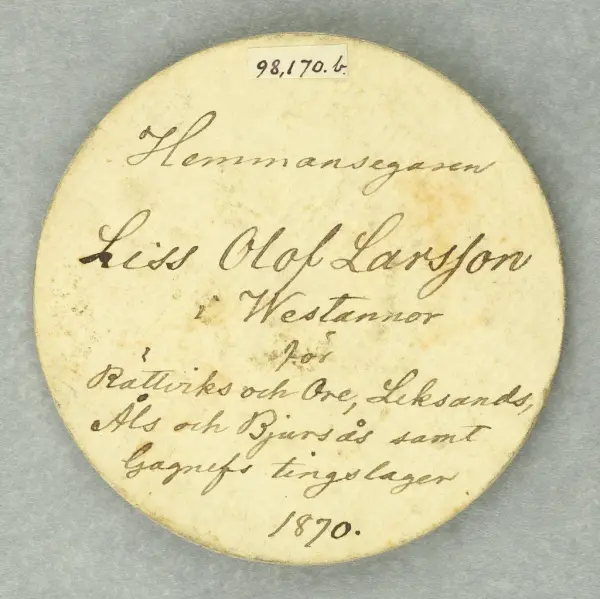 98,170.b.
Hemmansegaren
Liss Olof Larsson
i Westannor
för
Rättviks och Ore, Leksands,
Åls och Bjursås samt
Gagnefs tingslager
1870.